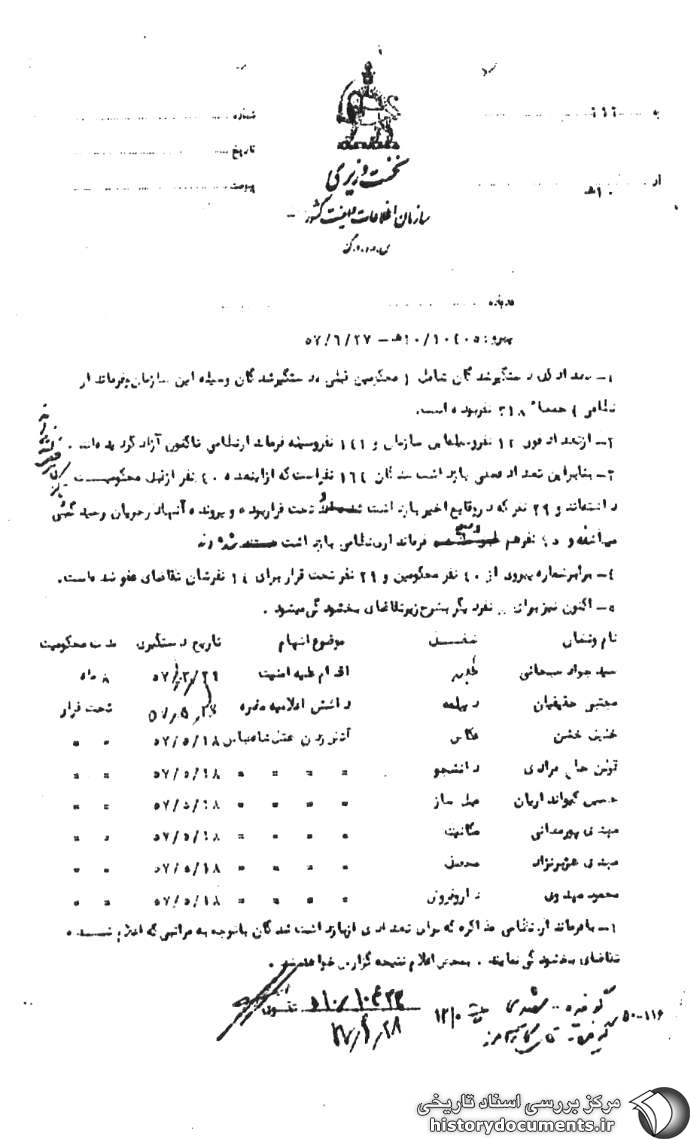 به ۳۱۲
شماره
تاریخ
از ۱۰ ﻫ
پیوست
نخست وزیری
سازمان اطلاعات و امنیت کشور
س.ا.و.ا.ک
درباره
پیرو : ۱۰/۱۰۴۰۵ﻫ - ۵۷/۶/۲۷
۱- تعداد کل دستگیرشدگان شامل ( محکومین قبلی دستگیرشدگان وسیله این سازمان و فرماندار
نظامی ) جمعا" ۳۱۸ نفر بوده است.
۲- از تعداد فوق ۱۲ نفر وسیله این سازمان و ۱۴۲ نفر وسیله فرماندار نظامی تاکنون آزاد گردیده‌اند .
۳- بنابراین تعداد فعلی بازداشت شدگان ۱۶۴ نفر است که از این عده ۴۰ نفر از قبل محکومیت
داشته‌اند و ۲۹ نفر که در وقایع اخیر بازداشت و تحت قرار بوده و پرونده آنها در جریان رسیدگی
میباشد و نفر هم فرماندار نظامی بازداشت
۴- برابر شماره پیروی از ۴۰ نفر محکومین و ۲۹ نفر تحت قرار برای ۱۴ نفرشان تقاضای عفو شده است.
۵- اکنون نیز برای نفر دیگر بشرح زیر تقاضای بخشودگی میشود .
نام و نشان شغل موضوع اتهام تاریخ دستگیری مدت محکومیت
سید جواد سبحانی اقدام علیه امنیت ۵۷/۲/۲۹ ۸ ماه
مجتبی حقیقیان دیپلمه داشتن اعلامیه مضره ۵۷/۵/۲۶ تحت قرار
خشن عکاس آتش زدن هتل شاه‌عباس ۵۷/۵/۱۸ " "
مرادی دانشجو " " " " ۵۷/۵/۱۸ " "
کیواند اریان مبل ساز " " " " ۵۷/۵/۱۸ " "
مهدی پورهمدانی مکانیک " " " " ۵۷/۵/۱۸ " "
مهدی عزیزنژاد محصل " " " " ۵۷/۵/۱۸ " "
محمود مهدوی داروفروش " " " " ۵۷/۵/۱۸ " "
۶- با فرماندار نظامی مذاکره که برای تعدادی از بازداشت شدگان با توجه به مراتبی که اعلام شده
تقاضای بخشودگی نمایند . بمحض اعلام نتیجه گزارش خواهد شد .
۱۰/۱۰۴۳۳ ﻫ
۵۷/۶/۲۸
گیرنده
۱۲۱۰
۵۰-۱۱۶
مرکز بررسی اسناد تاریخی
historydocuments.ir